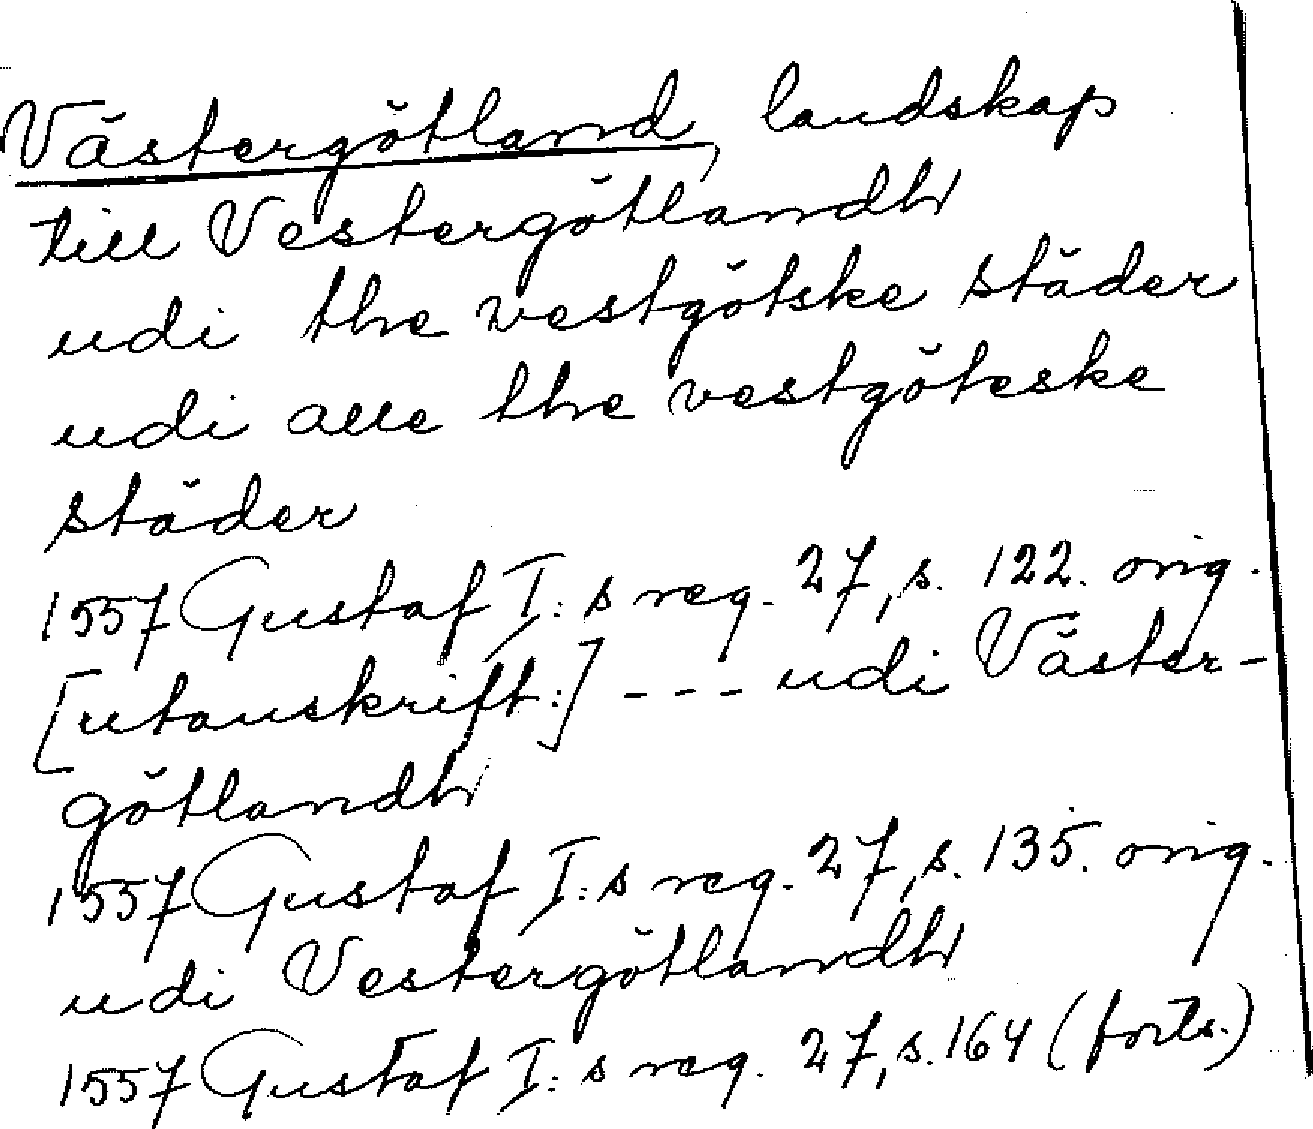 Västergötland, landskap
till Vestergötlandh
udi the vestgötske städer
udi alle the vestgöteske
städer
1557 Gustaf I:s reg. 27, s. 122. orig.
[utanskrift:] --- udi Väster-
götlandh
1557 Gustaf I:s reg. 27, s. 135. orig.
udi Vestergötlandh
1557 Gustaf I:s reg. 27, s. 164 (forts.)